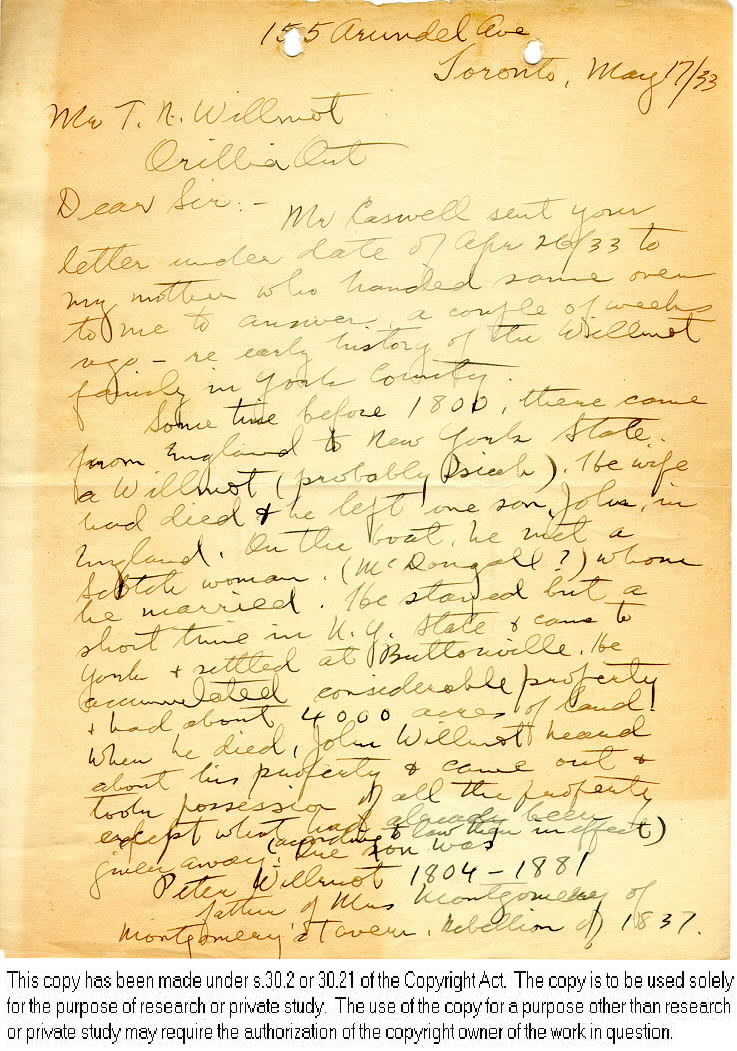 155 Arundel Ave
Toronto, May 17/33
Mr T. R. Willmot
Orillia Ont
Dear Sir:-
Mr Caswell sent your
letter under date of Apr 26/33 to
my mother who handed same over
to me to answer, a couple of weeks
ago - re early history of the Willmot
family in York County.
Some time before 1800, there came
from England to New York State
a Willmot (probably). He wife
had died & he left one son, John, in
England. On the boat, he met a
Scotch woman. (McDongall?) whom
he married. He stayed but a
short time in N.Y. State & came to
York & settled at Buttonville. He
accumulated considerable property
& had about 4000 acres of land.
When he died, John Willmot heard
about his property & came out &
took possession of all the property
except what had already been
(according to law then in effect)
given away. One son was
Peter Willmot 1804-1881
father of Mrs Montgomery of
Montgomery's Tavern, Rebellion of 1837.
This copy has been made under s.30.2 or 30.21 of the Copyright Act. The copy is to be used solely
for the purpose of research or private study. The use of the copy for a purpose other than research
or private study may require the authorization of the copyright owner of the work in question.